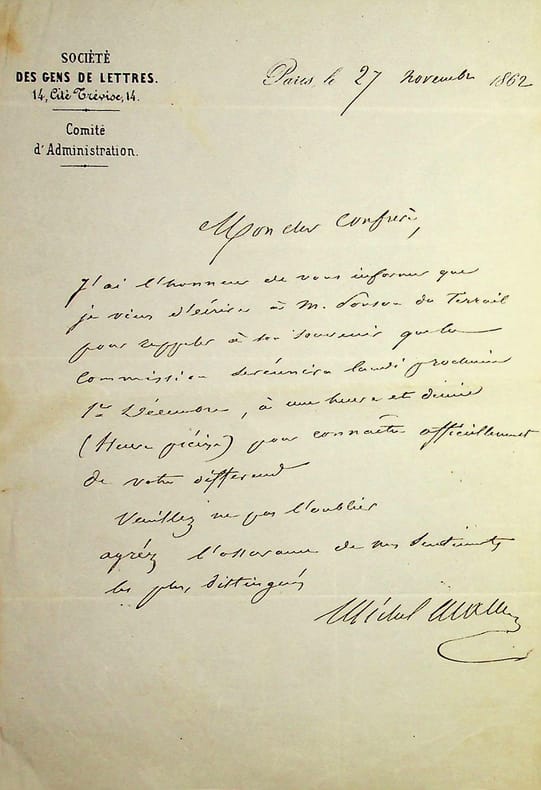 SOCIÉTÉ
DES GENS DE LETTRES.
14, Cité Trévise, 14.
Comité
d'Administration.
Paris, le 27 novembre 1862
Mon cher Confrère,
J'ai l'honneur de vous informer que
je viens d'écrire à M. Ponson du Terrail
pour rappeler à son souvenir que la
Commission se réunira lundi prochain
1er Décembre, à une heure et demie
(heure précise) pour connaître officiellement
de votre différend
Veuillez ne pas l'oublier
agréez l'assurance de mes sentiments
les plus distingués
Michel Masson